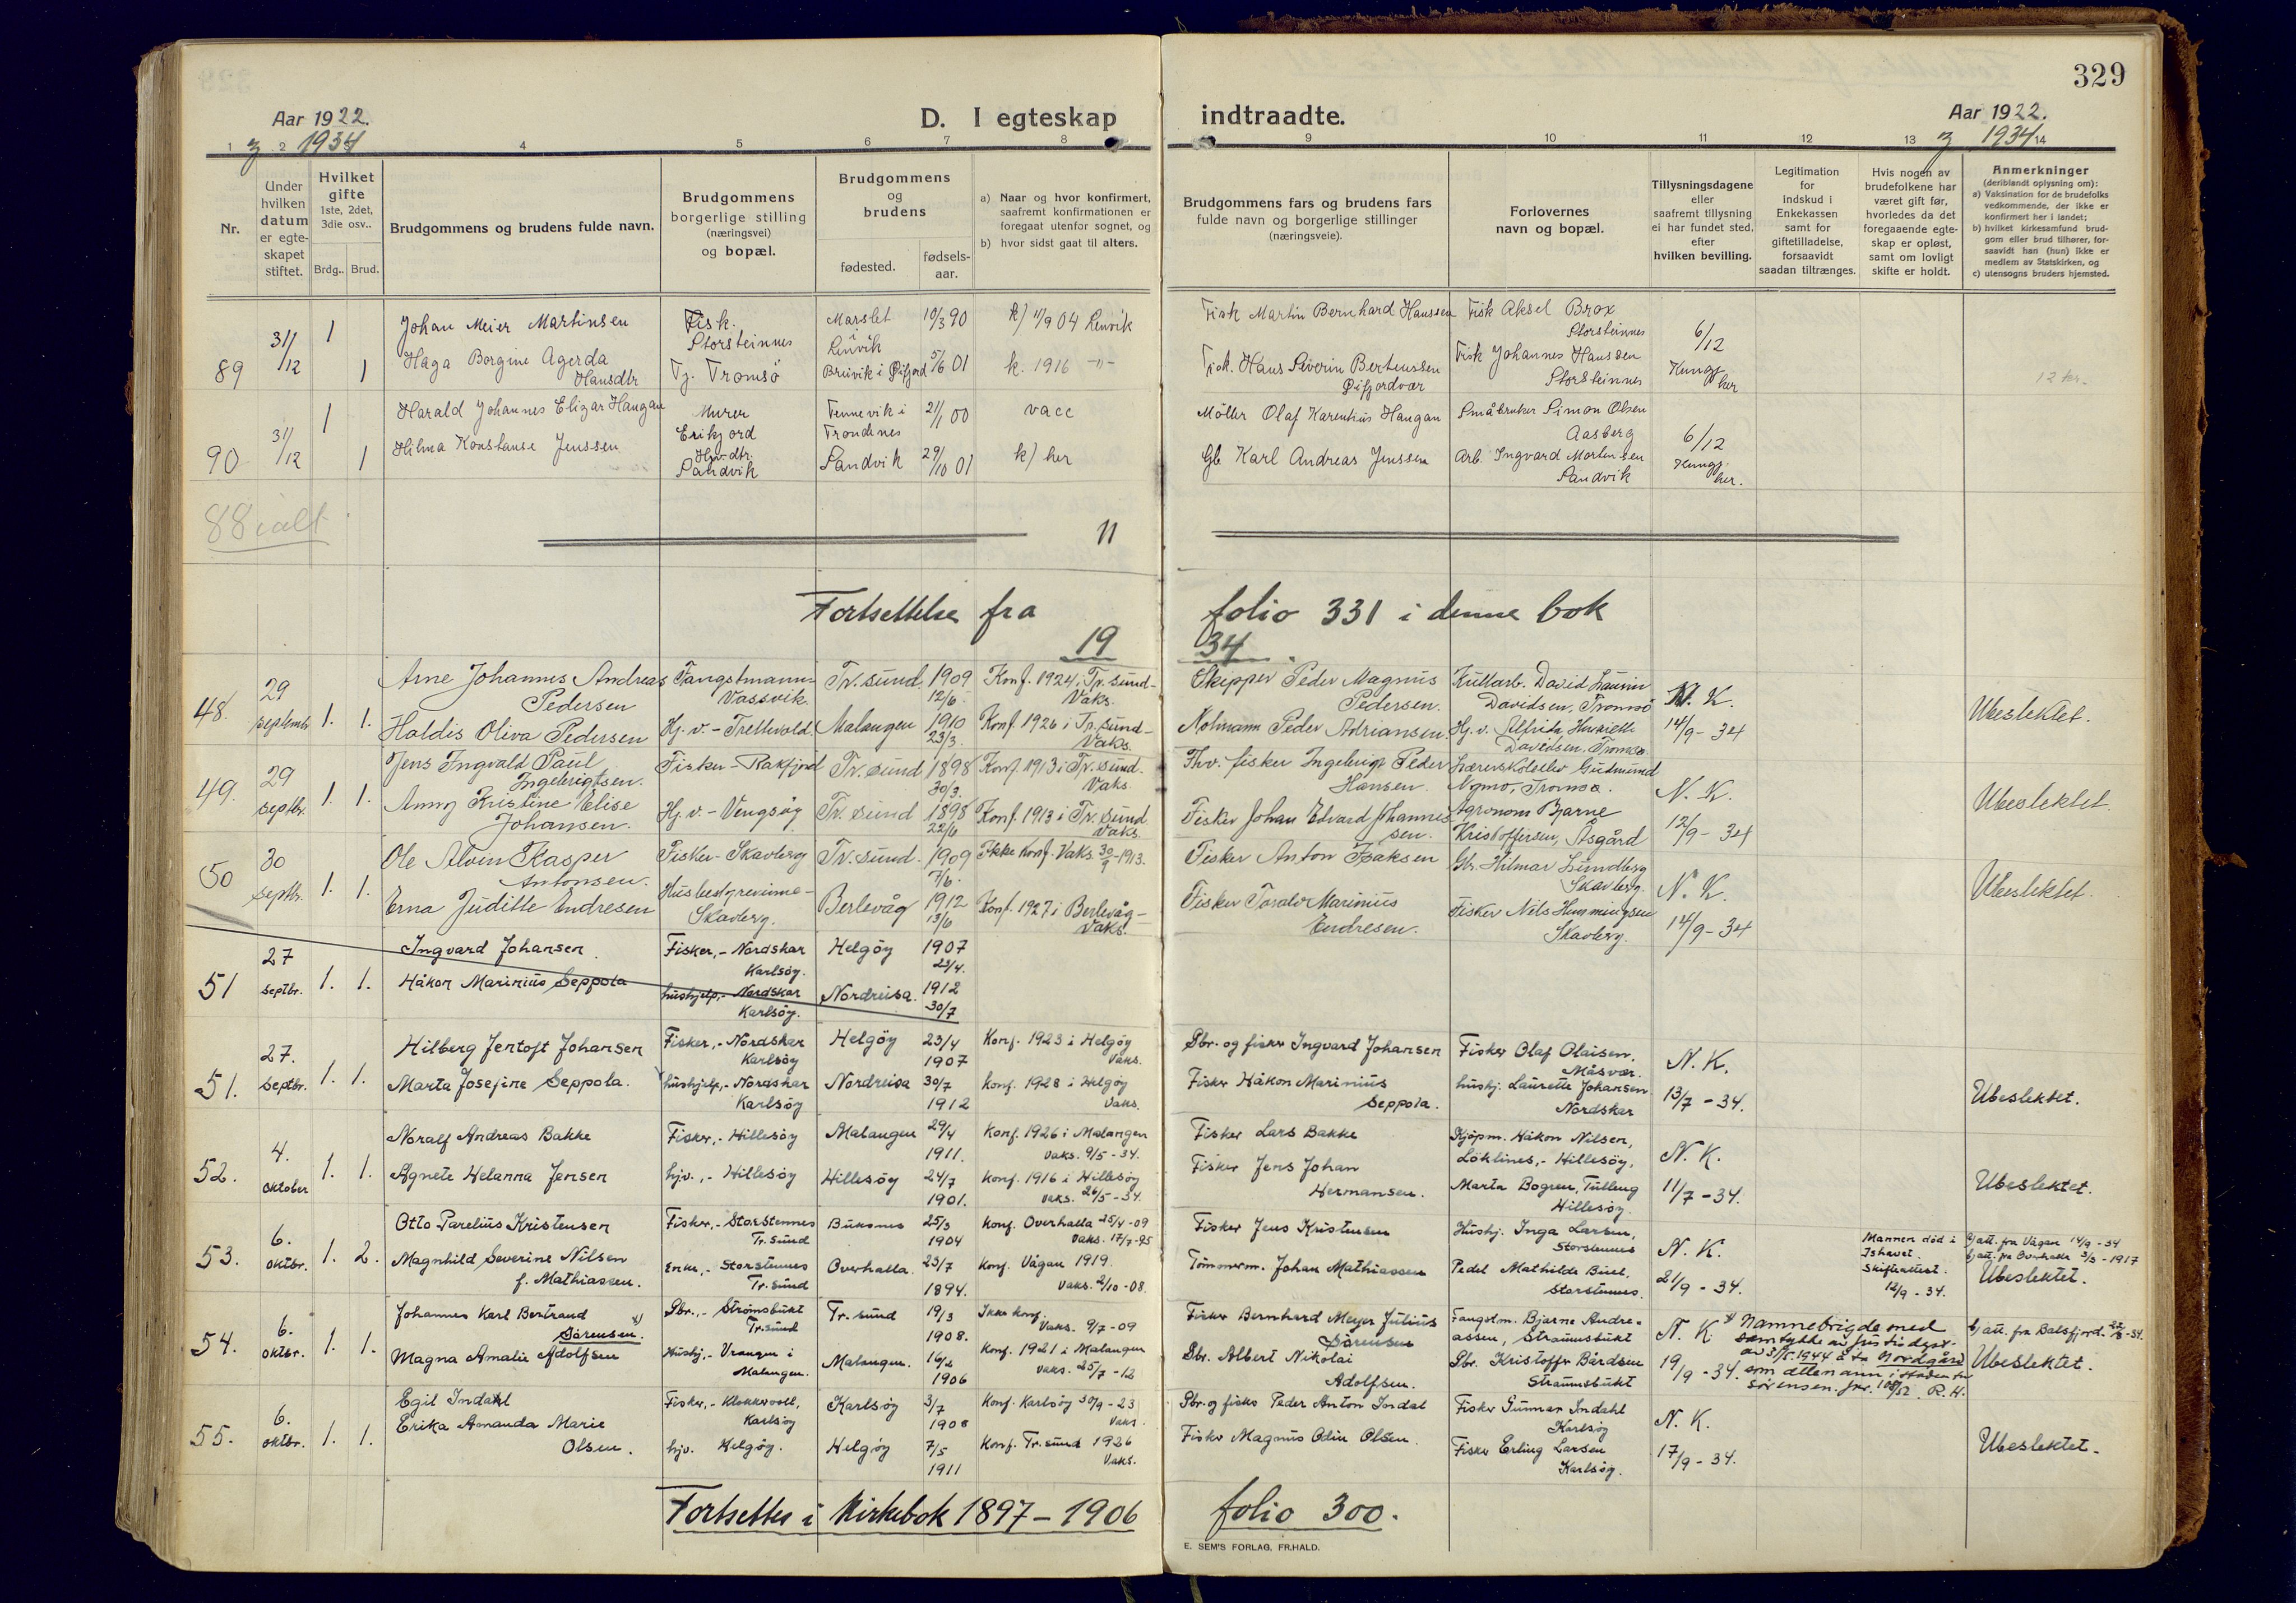 329
Aar 1922.
& 1934
D. I egteskap indtraadte.
Aar 1922.
& 1934
1 2 4 5 6 7 8 9 10 11 12 13 14
Nr.
Under hvilken datum er egteskapet stiftet.
Hvilket gifte 1ste, 2det, 3die osv..
Brdg.. Brud.
Brudgommens og brudens fulde navn.
Brudgommens borgerlige stilling (næringsvei) og bopæl.
Brudgommens og brudens
fødested.
fødselsaar.
a) Naar og hvor konfirmert, saafremt konfirmationen er foregaat utenfor sognet, og
b) hvor sidst gaat til alters.
Brudgommens fars og brudens fars fulde navn og borgerlige stillinger (næringsveie).
Forlovernes navn og bopæl.
Tillysningsdagene eller saafremt tillysning ei har fundet sted, efter hvilken bevilling.
Legitimation for indskud i Enkekassen samt for giftetilladelse, forsaavidt saadan tiltrænges.
Hvis nogen av brudefolkene har været gift før, hvorledes da det foregaaende egteskap er opløst, samt om lovligt skifte er holdt.
Anmerkninger (deriblandt oplysning om):
a) Vaksination for de brudefolks vedkommende, der ikke er konfirmert her i landet;
b) hvilket kirkesamfund brudgom eller brud tilhører, forsaavidt han (hun) ikke er medlem av Statskirken, og
c) utensogns bruders hjemsted.
89 31/12 1 Johan Meier Martinsen Fisk. Storsteinnes Marslet Lenvik 10/3 90 k) 11/9 04 Lenvik Fisk Martin Bernhard Hanssen Fisk Aksel Brox Storsteinnes 6/12
1 Haga Borgine Agerda Hansdtr Tj. Tromsö Breivik i Öifjord 5/6 01 k. 1916 -"- Fisk. Hans Severin Bertenssen Öifjordvær Fisk Johannes Hanssen Storsteinnes Kungj. her 12 kr.
90 31/12 1 Harald Johannes Elizar Haugan Murer Erikjord Tennevik i Trondenes 21/1 00 vacc Möller Olaf Karentius Haugan Småbruker Simon Olsen Aasberg 6/12
1 Hilma Konstanse Jenssen Hus.dtr. Sandvik Sandvik 29/10 01 k) her Gb Karl Andreas Jenssen Arb. Ingvard Mortensen Sandvik Kungj. her.
88 ialt
11
Fortsettelse fra folio 331 i denne bok
1934.
48. 29 septembr 1. 1. Arne Johannes Andreas Pedersen Fangstmann Vassvik. Tr. sund 1909 12/6. Konf. 1924 i Tr. sund - Vaks. Skipper Peder Magnus Pedersen. Kullarb. David Laurin Davidsen, Tromsö N. K.
Haldis Oliva Pedersen Hj. v. - Trettevold. Malangen 1910 23/3. Konf. 1926 i Tr. sund - Vaks. Nolmann Peder Adriansen. Hj. v. Alfrida Henriette Davidsen, Tromsø 14/9 - 34 Ubeslektet.
49. 29 septbr. 1. 1. Jens Ingvald Paul Ingebrigtsen. Fisker - Rakfjord Tr. sund 1898 30/3. Konf. 1913 i Tr. sund. Vaks. Fhv. fisker Ingebrigt Peder Hansen. Lærerskoleelev Gudmund Nymo, Tromsø. N. K.
Anny Kristine Elise Johansen. Hj. v. - Vengsøy Tr. sund 1898 22/6 Konf. 1913 i Tr. sund Vaks. Fisker Johan Edvard Johannessen. Agronom Bjarne Kristoffersen, Åsgård 12/9 - 34 Ubeslektet.
50 30 septbr. 1. 1. Ole Alvin Kasper Antonsen. Fisker - Skavberg Tr. sund. 1909 7/6. Ikke konf. Vaks. 30/9 - 1913. Fisker Anton Isaksen Gbr. Hilmar Lundberg Skavberg. N. K.
Erna Juditte Endresen Husbestyrerinne - Skavberg. Berlevåg 1912 13/6 Konf. 1927 i Berlevåg - Vaks. Fisker Tordor Marinius Endresen. Fisker Nils Hemmingsen Skavberg. 14/9 - 34 Ubeslektet.
51 27 septbr. 1. 1. Ingvard Johansen. Fisker, - Nordskar Karlsöy. Helgöy 1907 23/4.
Håkon Marinius Seppola hushjelp, - Nordskar Karlsöy. Nordreisa. 1912 30/7
51. 27. septbr. 1. 1. Hilberg Jentoft Johansen Fisker, - Nordskar Karlsöy Helgöy 23/4 1907 Konf. 1923 i Helgöy Vaks. Gbr. og fisker Ingvard Johansen Fisker Olaf Olaisen, Måsvær. N. K.
Marta Josefine Seppola. hushjelp, - Nordskar Karlsöy Nordreisa 30/7 1912 konf. 1928 i Helgöy Vaks. Fisker Håkon Marinius Seppola. hushj. Laurette Johansen Nordskar 13/7 - 34. Ubeslektet.
52. 4. oktober 1. 1. Noralf Andreas Bakke Fisker, - Hillesöy Malangen 29/4 1911. konf. 1926 i Malangen Vaks. 9/5 - 34. Fisker Lars Bakke Kjöpm. Håkon Nilsen, Löklines, - Hillesöy, N. K.
Agnete Helanna Jensen hjv., - Hillesöy Hillesöy 24/7 1901. konf. 1916 i Hillesöy vaks. 26/5 - 34. Fisker Jens Johan Hermansen. Marta Bogren, Tulleng Hillesöy. 11/7 - 34. Ubeslektet.
53. 6. oktbr. 1. 2. Otto Parelius Kristensen Fisker, - Storstennes Tr. sund Buksnes 25/3 1904 konf. Overhalla 25/4 - 09 Vaks. 17/7 - 95 Fisker Jens Kristensen Hushj. Inga Larsen, Storstennes N. K. Mannen död i Ishavet. Skifteattest. 12/9 - 34. a) att. fra Vågan 14/9 - 34 b) att. fra Overhalla 3/3 - 1917
Magnhild Severine Nilsen f. Mathiassen. Enke, - Storstennes Tr. sund Overhalla. 23/7 1894. konf. Vågan 1919. Vaks. 2/10 - 08. Tömmerm. Johan Mathiassen Pedel Mathilde Buel, Storstennes. 21/9 - 34. Ubeslektet.
54. 6. oktbr. 1. 1. Johannes Karl Bertrand Sörensen. x) Gbr., - Strömsbukt Tr. sund Tr. sund 19/3 1908. Ikke konf. Vaks. 9/7 - 09 Fisker Bernhard Meyer Julius Sörensen Fangstm. Bjarne Andreassen, Straumsbukt N. K x) Namnebrigde med samtykke av av 31/5 1944 å ta Nordgård som ettenamn i staden for Sörensen. R. H. b) att. fra Balsfjord. 22/8 - 34.
Magna Amalie Adolfsen Hushj., - Vrangen i Malangen. Malangen. 16/2 1906 konf. 1921 i Malangen vaks. 25/7 - 12 Gbr. Albert Nikolai Adolfsen. Gbr. Kristoffer Bårdsen Straumsbukt 19/9 - 34. Ubeslektet.
55. 6. oktbr. 1. 1. Egil Indahl Fisker, - Klokkervoll, Karlsöy Karlsöy 3/7 1908 Konf. Karlsöy 30/9 - 23 Vaks. Gbr. og fisker Peder Anton Indal Fisker Gunnar Indahl Karlsöy N. K.
Erika Amanda Marie Olsen. hjv. Helgöy. Helgöy 7/5 1911 Konf. Tr. sund 1926 Vaks. Fisker Magnus Odin Olsen. Fisker Erling Larsen Karlsöy. 17/9 - 34. Ubeslektet.
Fortsettes i Kirkebok 1897 - 1906 folio 300.
E. SEM'S FORLAG, FR.HALD.